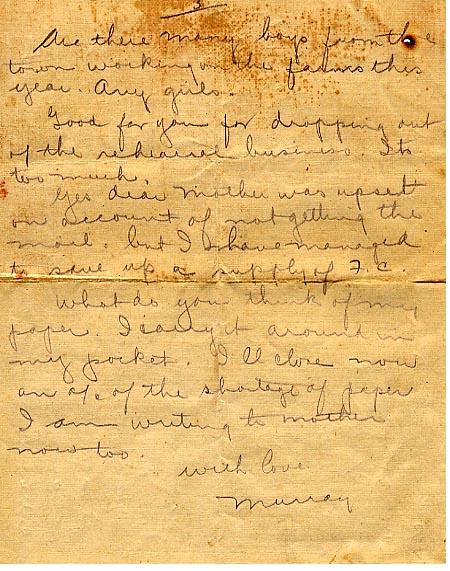 3
Are there many boys from the
town working on the farms this
year. Any girls.
Good for you for dropping out
of the rehearsal business. Its
too much.
Yes dear mother was upset
on account of not getting the
mail. but I have managed
to save up a supply of F.C.
What do you think of my
paper. I carry it around in
my pocket. I'll close now
on a/c of the shortage of paper
I am writing to mother
now too.
with love
Murray